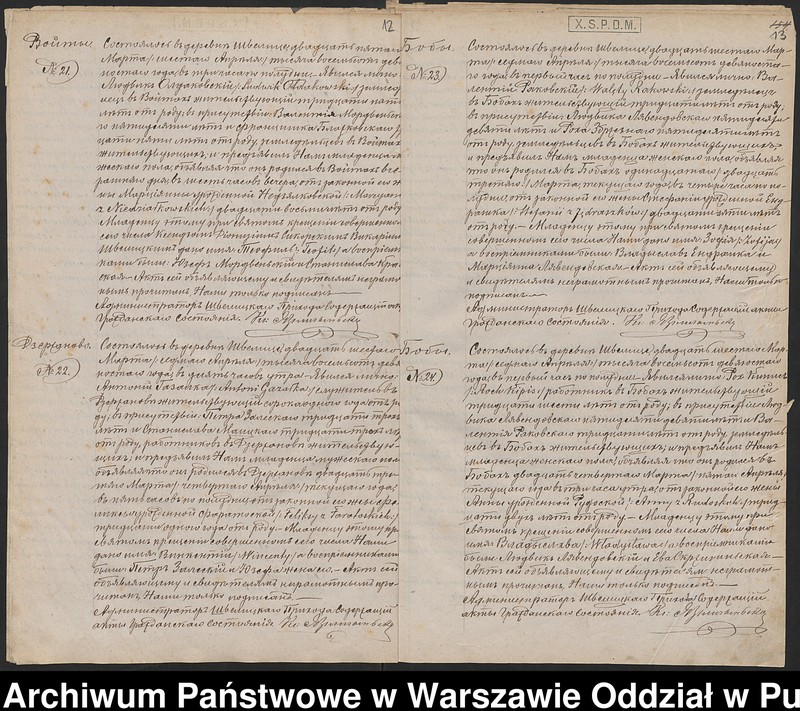 12
Войты.
№ 21.
Состоялось въ деревнѣ Швелице, двадцать пятаго
Марта /: шестаго Апрѣля :/ тысяча восемьсотъ девя-
ностаго года, въ три часа по полудни.— Явился лично
Людвикъ Олдаковскій /: Ludwik Ołdakowski :/ земледѣ-
лецъ въ Войтахъ жительствующій, тридцати пяти
лѣтъ отъ роду, въ присутствіи Валентія Мордвинска-
го пятидесяти лѣтъ и Францишка
цати пяти лѣтъ отъ роду, земледѣльцевъ въ Войтахъ
жительствующихъ, и предъявилъ Намъ младенца
женскаго пола, объявляя что онъ родился въ Войтахъ вче-
рашняго дня, въ шесть часовъ вечера, отъ законной его же-
ны Маріянны урожденной Недзялковской /: Maryanny
z Niedziałkowskich :/ двадцати восьми лѣтъ отъ роду.
Младенцу этому при святомъ крещеніи совершенномъ
сего числа Ксендзомъ Сикорскимъ Викаріемъ
Швелицкимъ дано имя: Теофиля /: Teofila :/ а воспріем-
никами были: Юзефъ Мордвинскій и Станислава
ская.— Актъ сей объявляющему и свидѣтелямъ неграмот-
нымъ прочитанъ, Нами только подписанъ.
Администраторъ Швелицкаго Прихода Содержащій акты
гражданскаго состоянія. Кс:
Дзержаново.
№ 22.
Состоялось въ деревнѣ Швелице, двадцать шестаго
Марта /: седмаго Апрѣля :/ тысяча восемьсотъ девя-
ностаго года, въ десять часовъ утра.— Явился лично
Антоній Газалка /: Antoni Gazałka :/ служитель въ
Дзержановѣ жительствующій, сорока одного года отъ ро-
ду, въ присутствіи Петра Залескаго тридцати трехъ
лѣтъ и Станислава тридцати трехъ лѣтъ
отъ роду, работниковъ въ Дзержановѣ жительствую-
щихъ; и предъявилъ Намъ младенца мужескаго пола
объявляя что онъ родился въ Дзержановѣ двадцать тре-
тяго Марта /: четвертаго Апрѣля :/ текущаго года,
въ пять часовъ по полудни, отъ законной его жены Фе-
ликсы урожденной /: Feliksy z :/
тридцати одного года отъ роду.— Младенцу этому при
святомъ крещеніи совершенномъ сего числа Нами
дано имя Викентій /: Wincenty :/ а воспріемниками
были: Петръ Залескій и Юзефа жена его.— Актъ сей
объявляющему и свидѣтелямъ неграмотнымъ про-
читанъ, Нами только подписанъ.—
Администраторъ Швелицкаго Прихода Содержащій
акты гражданскаго состоянія Кс:
X.S.P.D.M.
13
Бобы.
№ 23.
Состоялось въ деревнѣ Швелице, двадцать шестаго Мар-
та /: седмаго Апрѣля :/ тысяча восемьсотъ девяноста-
го года, въ первый часъ по полудни.— Явился лично: Ва-
лентій Раковскій /: Walenty Rakowski :/ земледѣлецъ
въ Бобахъ жительствующій, тридцати лѣтъ отъ роду,
въ присутствіи Людвика Лявендовскаго пятидесяти
девяти лѣтъ и Роха пятидесяти лѣтъ
отъ роду, земледѣльцевъ въ Бобахъ жительствующихъ;
и предъявилъ Намъ младенца женскаго пола, объявляя
что онъ родился въ Бобахъ одинадцатаго /: двадцать
третяго :/ Марта текущаго года, въ четыре часа по по-
лудни, отъ законной его жены Стефаніи урожденной Енд-
/: Stefanii z :/ двадцати пяти лѣтъ
отъ роду.— Младенцу этому при святомъ крещеніи
совершенномъ сего числа Нами дано имя Зофія /: Zofija :/
а воспріемниками были: Владиславъ и
Маріянна Лявендовская.— Актъ сей объявляющему
и свидѣтелямъ неграмотнымъ прочитанъ, Нами только
подписанъ.—
Администраторъ Швелицкаго Прихода Содержащій акты
гражданскаго состоянія. Кс:
Бобы.
№ 24.
Состоялось въ деревнѣ Швелице, двадцать шестаго Мар-
та /: седмаго Апрѣля :/ тысяча восемьсотъ девяностаго
года, въ первый часъ по полудни. Явился лично: Рохъ
/: Roch :/ работникъ въ Бобахъ жительствующій
тридцати шести лѣтъ отъ роду, въ присутствіи Люд-
вика Лявендовскаго пятидесяти девяти лѣтъ и Ва-
лентія Раковскаго тридцати лѣтъ отъ роду, земледѣль-
цевъ въ Бобахъ жительствующихъ, и предъявилъ Намъ
младенца женскаго пола, объявляя что онъ родился въ
Бобахъ двадцать четвертаго Марта /: пятаго Апрѣля :/
текущаго года, въ три часа утра, отъ законной его жены
Анны урожденной Рудовской /: Anny z Rudowskich :/ трид-
цати двухъ лѣтъ отъ роду.— Младенцу этому при
святомъ крещеніи совершенномъ сего числа Нами дано
имя Владыслава /: Władysława :/ а воспріемниками
были: Людвикъ Лявендовскій и Ева
Актъ сей объявляющему и свидѣтелямъ неграмот-
нымъ прочитанъ, Нами только подписанъ.—
Администраторъ Швелицкаго Прихода Содержащій
акты гражданскаго состоянія Кс:
Archiwum Państwowe w Warszawie Oddział w Pu